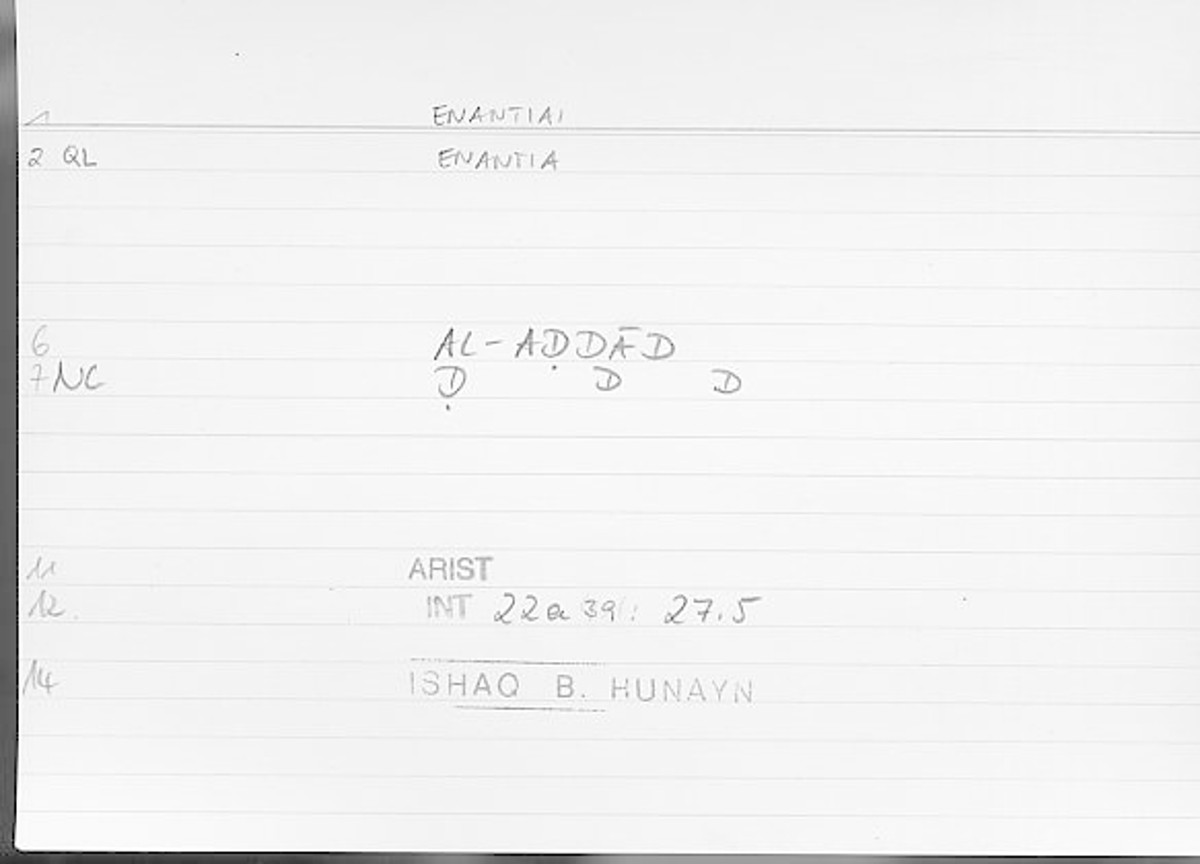 1 ENANTIAI
2 QL ENANTIA
6 AL-AḌDĀD
7 NC Ḍ D D
11 ARIST
12. INT 22a39: 27.5
14 ISHAQ B. HUNAYN